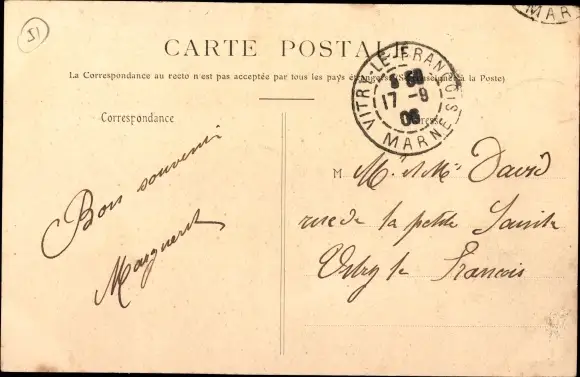 51
MAR
CARTE POSTALE
La Correspondance au recto n'est pas acceptée par tous les pays étrangers (Se renseigner à la Poste)
VITRY-LE-FRANÇOIS
17 - 9
06
MARNE
Correspondance
Adresse
Bon souvenir
Marguerite
M M. et Me David
rue de la petite Sainte
Vitry le François